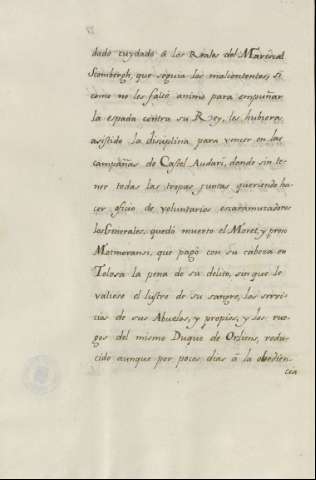 dado cuydado â los Reales del Mariscal
Scomberch, que seguia los malcontentos, si
como no les faltó animo para empuñar
la espada contra su Rey, les hubiera
asistido la disciplina para vencer en las
campañas de Castel Audari, donde sin te-
ner todas las tropas juntas queriendo ha-
cer oficio de voluntarios escaramuzadores
los Generales, quedó muerto el Moret, y preso
Memoransi, que pagó con su cabeza en
Tolosa la pena de su delito, sin que le
valiese el lustre de su sangre, los servi-
cios de sus Abuelos, y propios, y los rue-
gos del mismo Duque de Orliens, redu-
cido aunque por pocos dias â la obedien-
cia